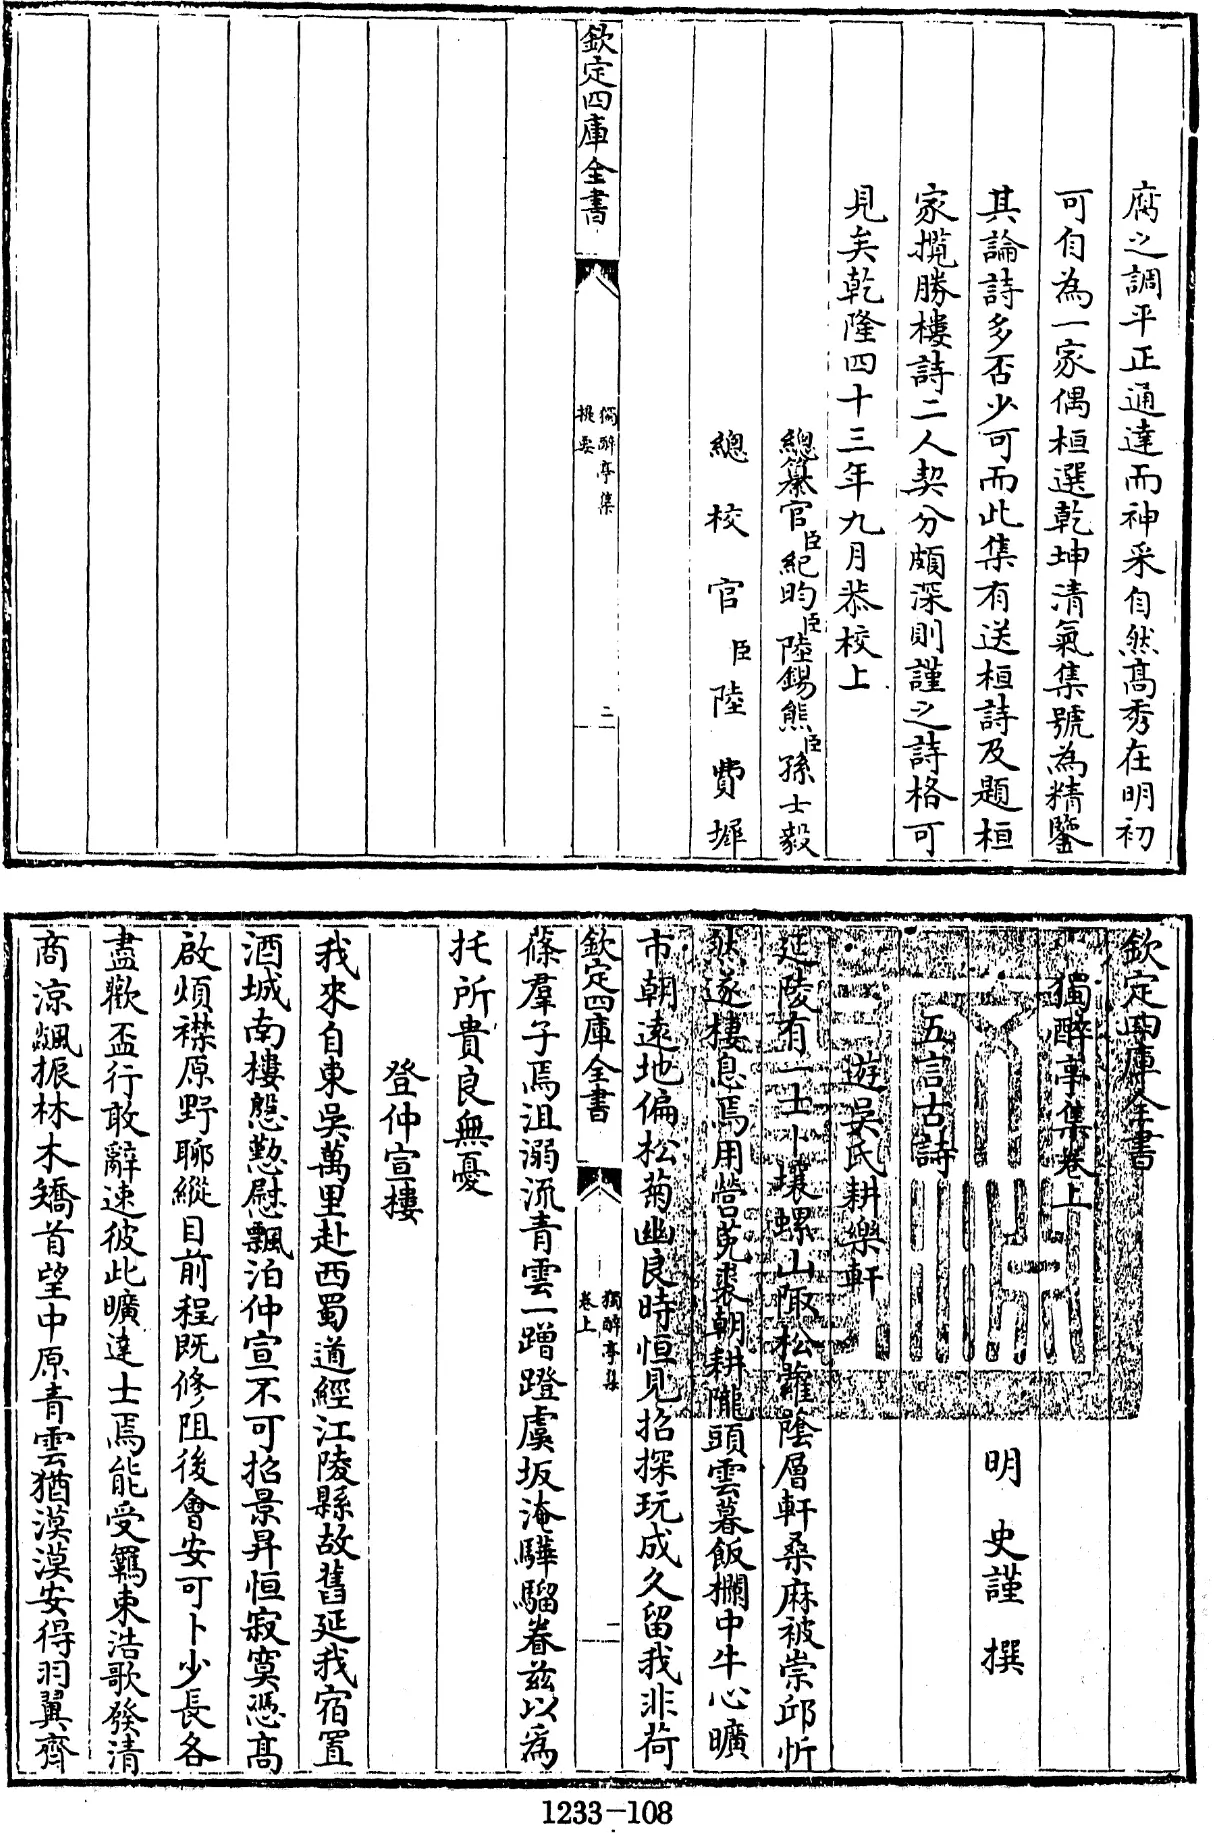 腐之調平正通達而神采自然高秀在明初
可自為一家偶桓選乾坤清氣集號為精鑒
其論詩多否少可而此集有送桓詩及題桓
家攬勝樓詩二人契分頗深則謹之詩格可
見矣乾隆四十三年九月恭校上
總纂官臣紀昀臣陸錫熊臣孫士毅
總校官臣陸費墀
欽定四庫全書
獨醉亭集
提要
二
欽定四庫全書
獨醉亭集卷上
明 史謹 撰
五言古詩
遊吳氏耕樂軒
延陵有一士卜壤螺山陬松蘿蔭層軒桑麻被崇邱忻
然遂棲息焉用營菟裘朝耕隴頭雲暮飯欄中牛心曠
市朝遠地偏松菊幽良時恒見招探玩成久留我非荷
欽定四庫全書
獨醉亭集
卷上
一
蓧羣子焉沮溺流青雲一蹭蹬虞坂淹驊騮眷兹以為
托所貴良無憂
登仲宣樓
我來自東吳萬里赴西蜀道經江陵縣故舊延我宿置
酒城南樓慇懃慰飄泊仲宣不可招景昇恒寂寞憑高
啟煩襟原野聊縱目前程既修阻後會安可卜少長各
盡歡盃行敢辭速彼此曠達士焉能受羈束浩歌發清
商涼飇振林木矯首望中原青雲猶漠漠安得羽翼齊
1233-108